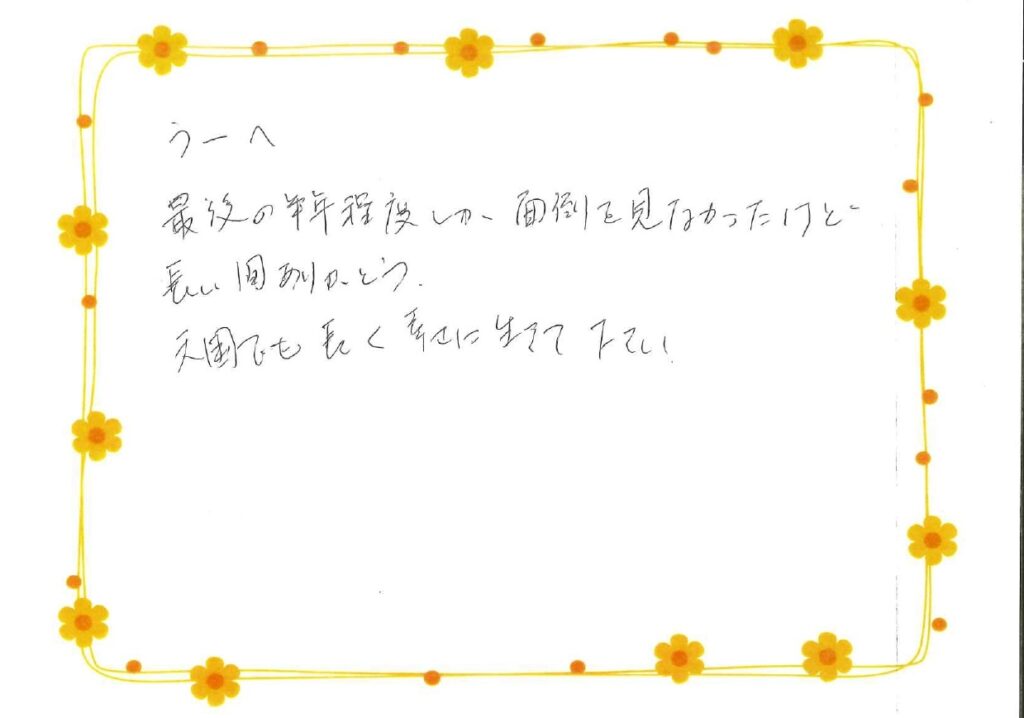 うーへ
最後の半年程度しか、面倒を見なかったけど
長い間ありがとう.
天国でも長く幸せに生きて下さい